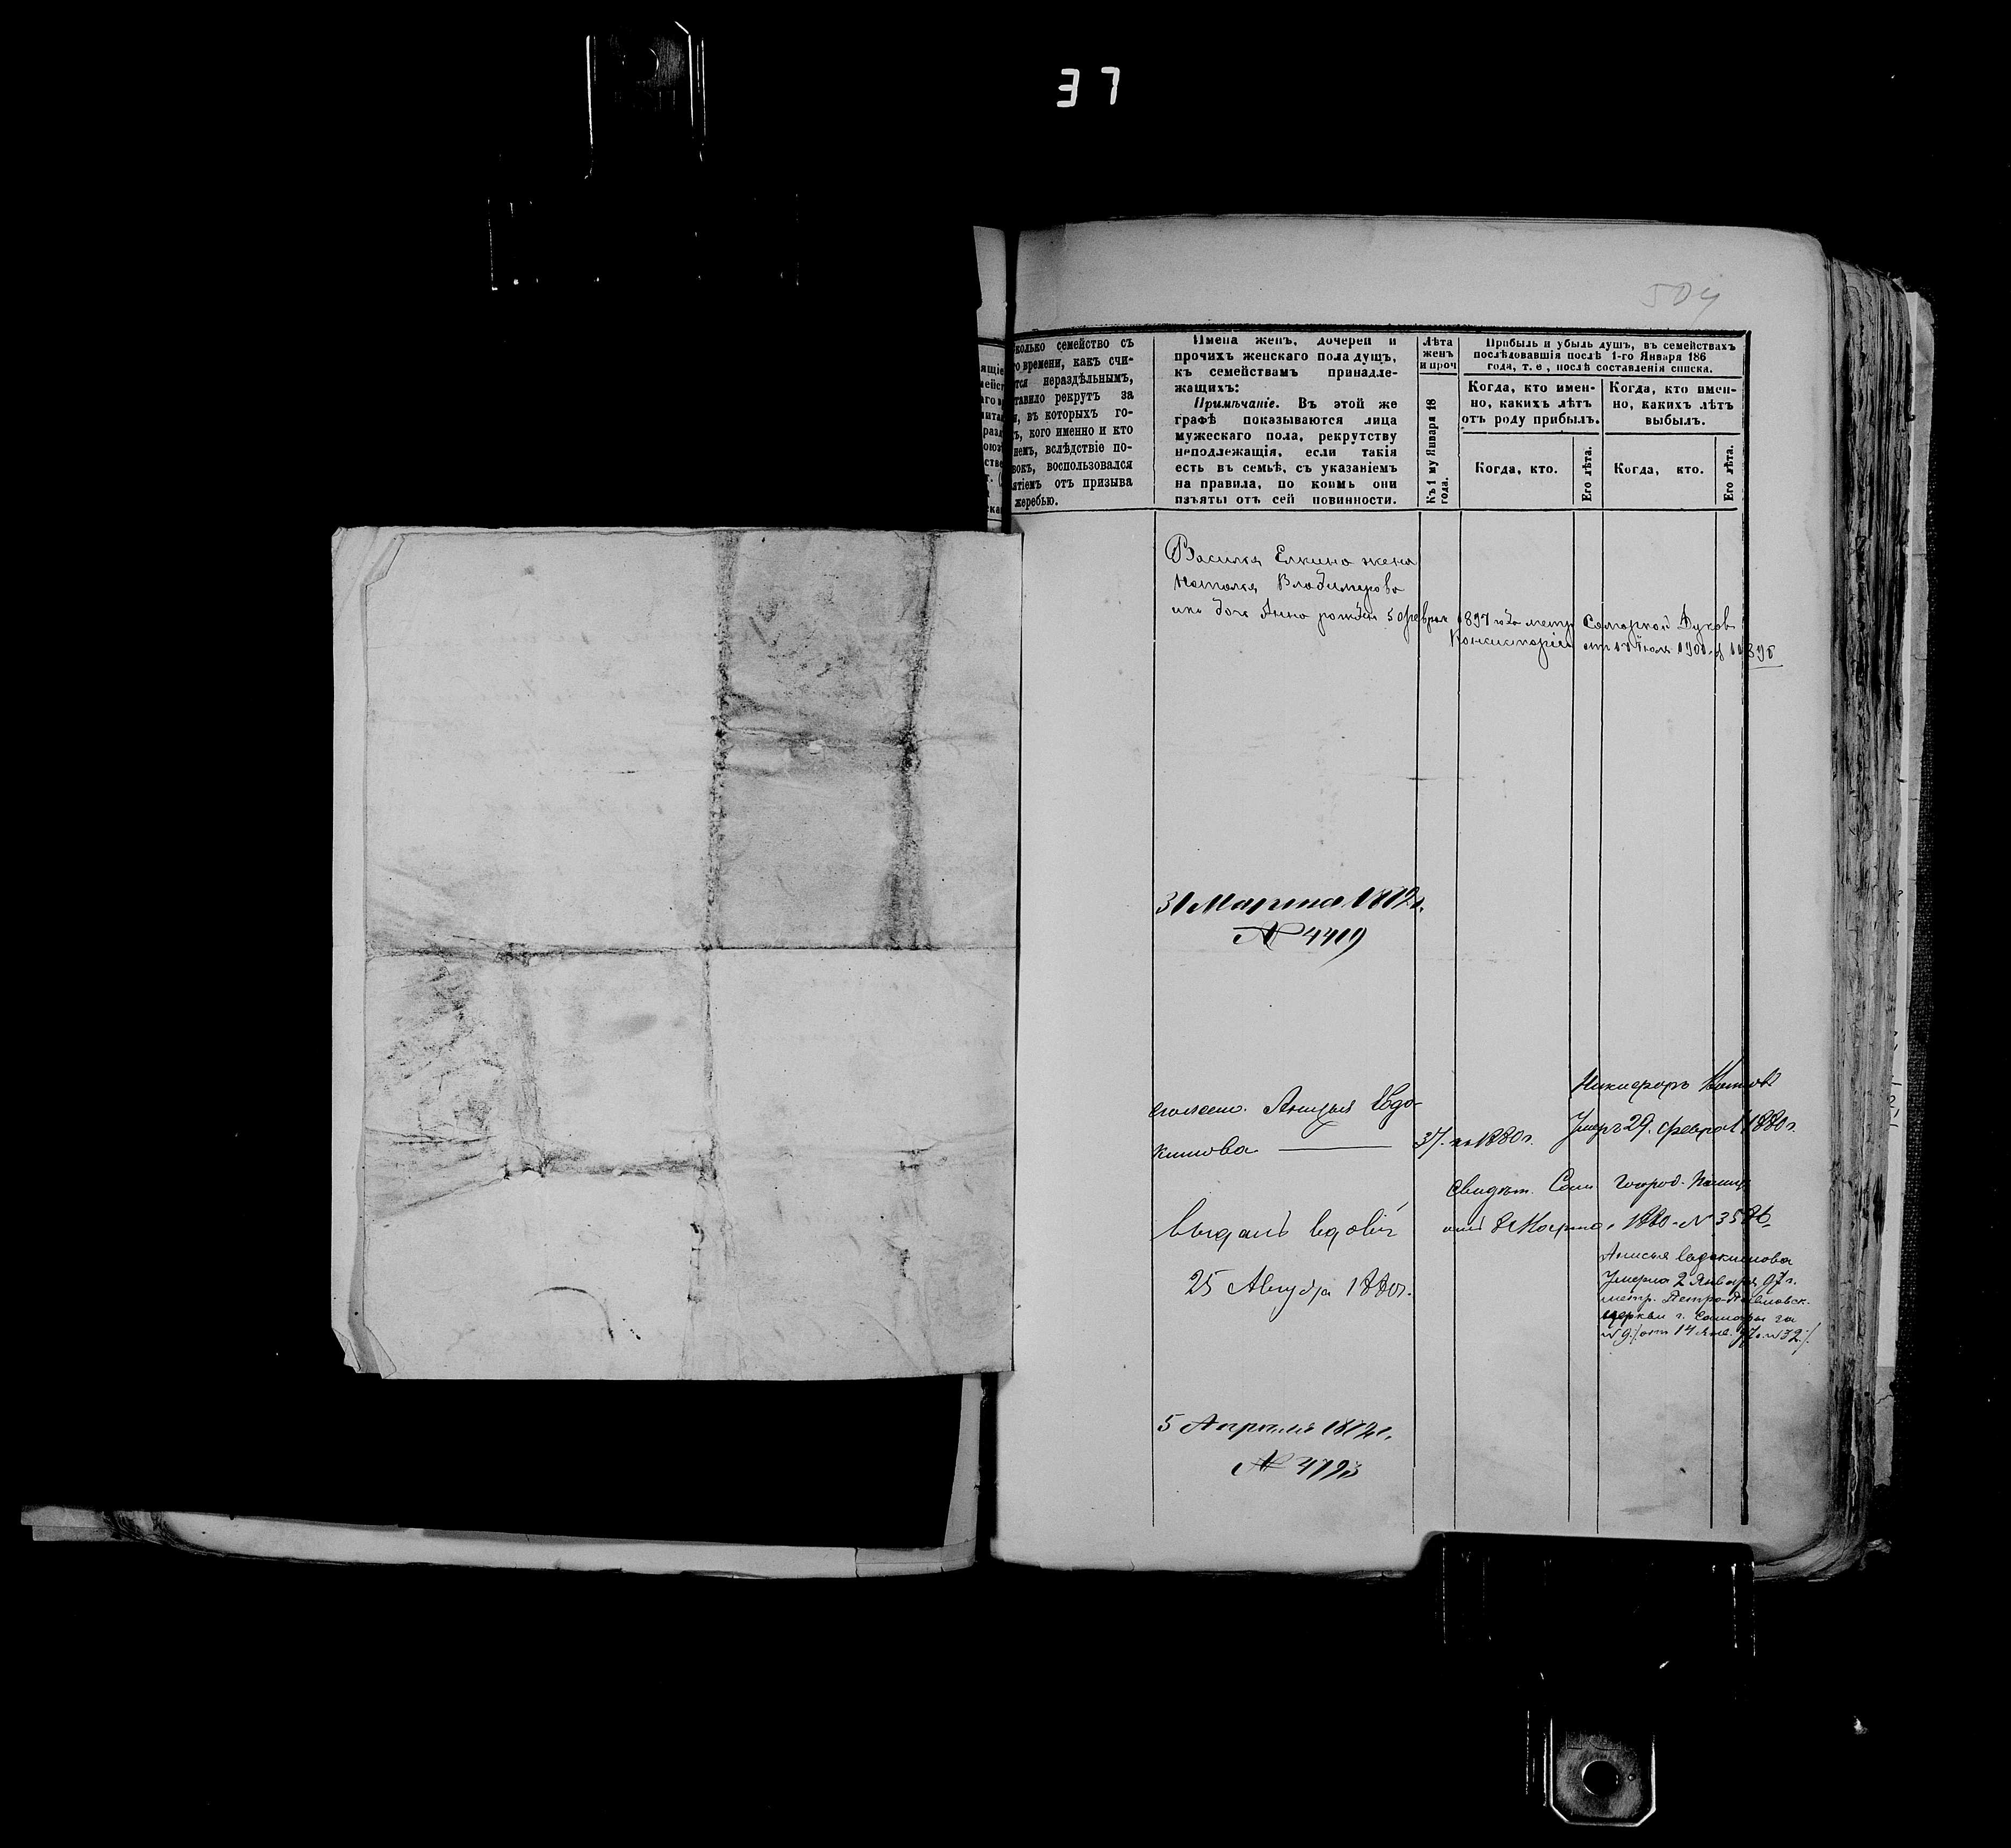 37
504
колько семейство съ
го времени, какъ счи-
тся нераздѣльнымъ,
тавило рекрутъ за
и, въ которыхъ го-
ъ, кого именно и кто
немъ, вслѣдствіе по-
вокъ, воспользовался
ятіемъ отъ призыва
жеребью.
Имена женъ, дочерей и
прочихъ женскаго пола душъ,
къ семействамъ принадле-
жащихъ:
Примѣчаніе. Въ этой же
графѣ показываются лица
мужескаго пола, рекрутству
неподлежащія, если такія
есть въ семьѣ, съ указаніемъ
на правила, по коимъ они
изъяты отъ сей повинности.
Лѣта
женъ
и проч
Къ 1 му Января 18
года.
Прибыль и убыль душъ, въ семействахъ
послѣдовавшія послѣ 1-го Января 186
года, т. е., послѣ составленія списка.
Когда, кто имен-
но, какихъ лѣтъ
отъ роду прибылъ.
Когда, кто имен-
но, какихъ лѣтъ
выбылъ.
Когда, кто.
Его лѣта.
Когда, кто.
Его лѣта.
Василія Елкина жена
Наталья Владимерова
ихъ дочь Анна 5 Февраля 1897 года метр Самарской Духов
Консисторіи от 17 Июля 1901
31 Марта 1872г.
№ 4419
Анисья Евдо-
кимова 37. в 1880г.
Никифоръ
Умеръ 29. февра 1880г.
Свидѣт. Сам Город.
8 Марта 1880
Выданъ вдовій
25 Августа 1880г.
Анисья Евдокимова
Умерла 2 Января 97 г.
метр. Петро-Павловск.
церкви г. Самары за
№ 9/ от 14 Янв. 97 г. № 32/.
5 Апреля 1872г.
№ 4793